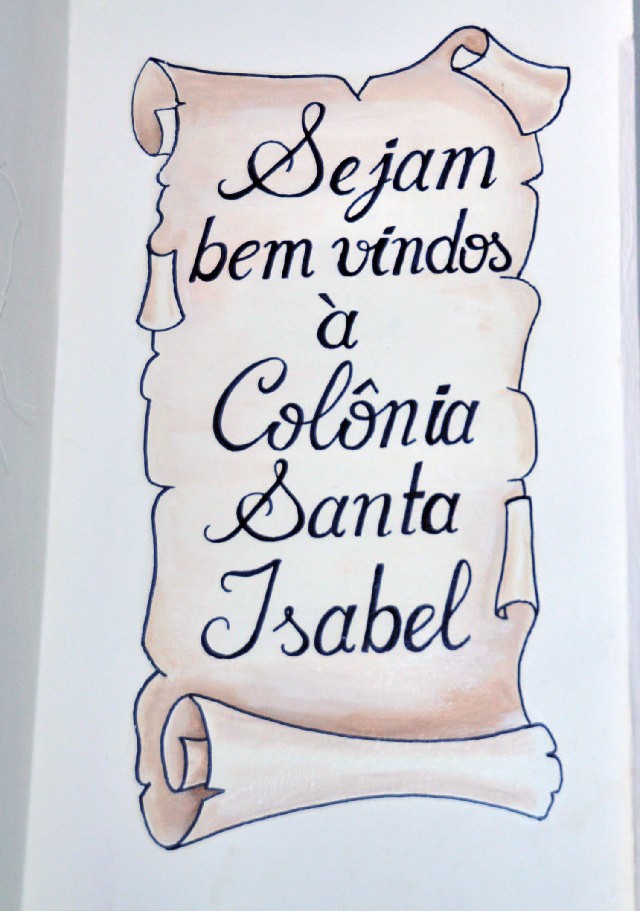 Sejam
bem vindos
à
Colônia
Santa
Isabel